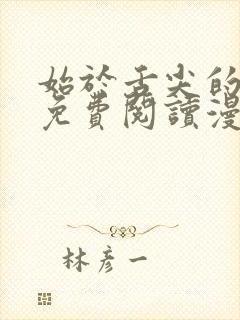 始於舌尖的
免費閱讀漫
林彥一